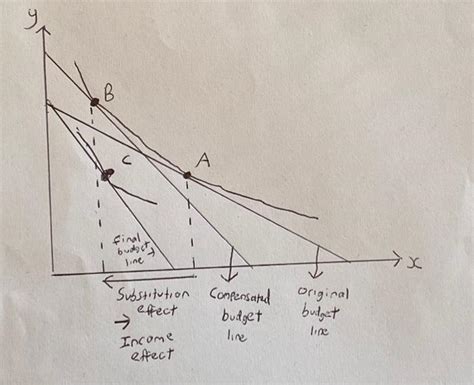 y
B
C
A
final
budget
line
x
Substitution
effect
Income
effect
Compensated
budget
line
original
budget
line